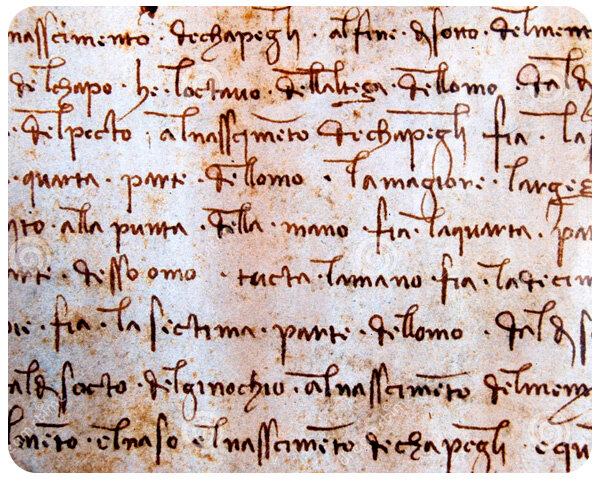 nasscimento · dechapegli · alfine · di sotto · delment
delchapo · he loctavo · dellaltega · dellomo · dal di
· delpecto · alnasscimēto dechapegli fia · la
· quarta · parte · dellomo · lamagiore · large
ito · alla punta · della · mano · fia · laquarta · pa
arte · desso omo · tucta · lamano · fia · ladecim
ie · fia · la sectima · parte · dellomo · dal di s
al di socto · delginochio · alnasscimēto delmem
lmēto · elnaso elnasscimēto dechapegli · equ